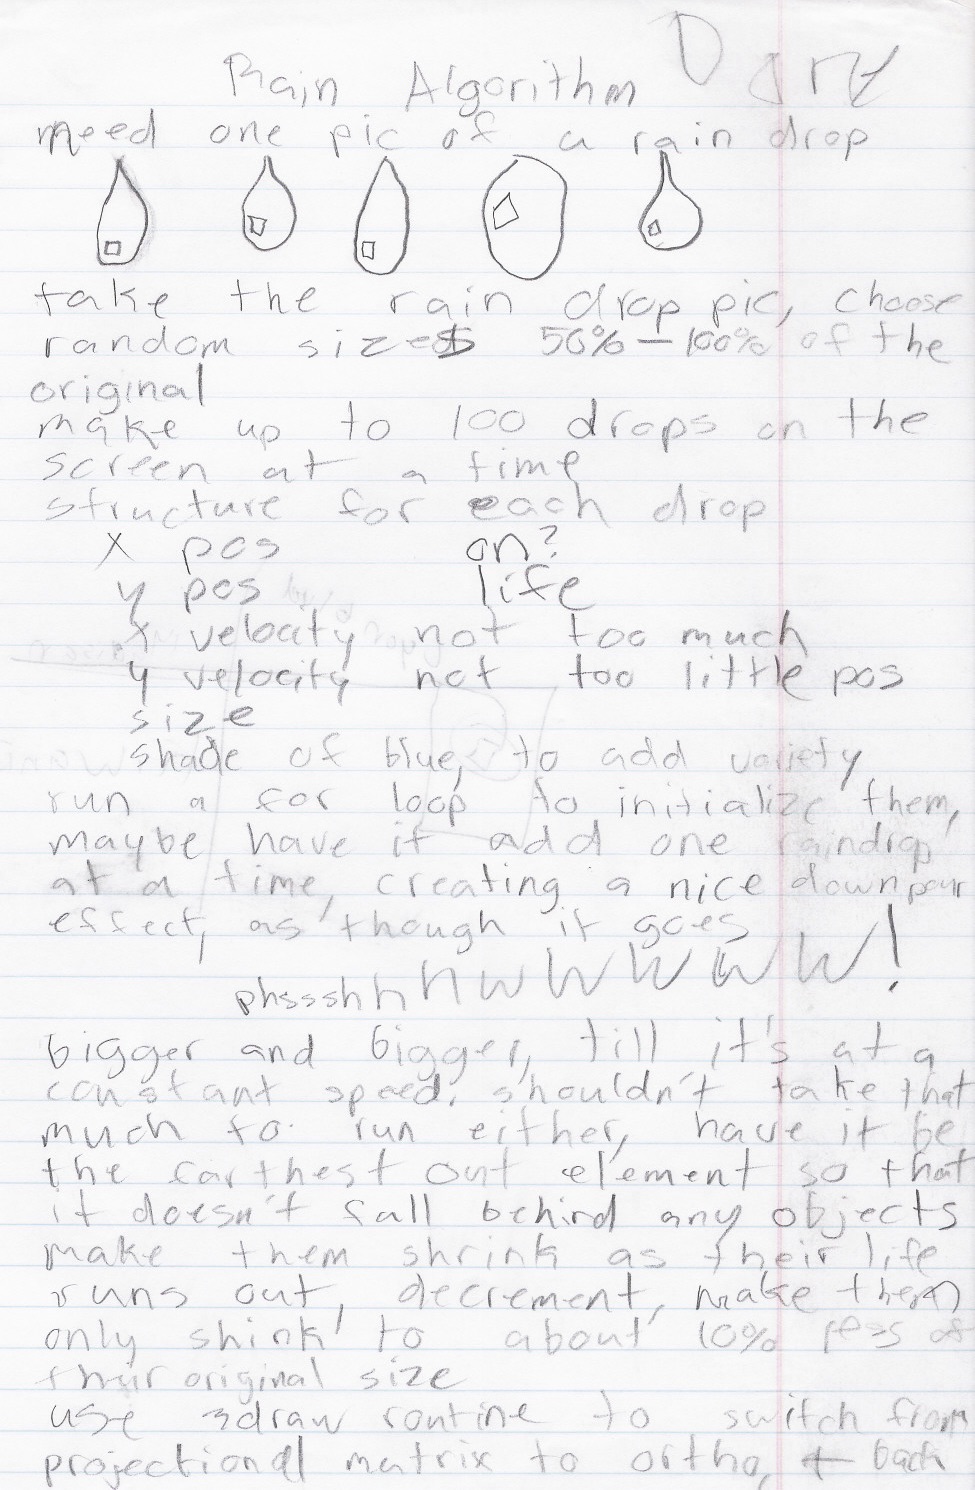 Rain Algorithm
need one pic of a rain drop
take the rain drop pic, choose
random sizes 50% - 100% of the
original
make up to 100 drops on the
screen at a time
structure for each drop
x pos on?
y pos life
x velocity not too much
y velocity not too little pos
size
shade of blue, to add variety
run a for loop to initialize them,
maybe have it add one raindrop
at a time, creating a nice downpour
effect, as though it goes
phssshhhwwwwww!
bigger and bigger, till it's at a
constant speed. shouldn't take that
much to run either, have it be
the farthest out element so that
it doesn't fall behind any objects
make them shrink as their life
runs out, decrement, make them
only shink to about 10% less of
their original size
use 3draw routine to switch from
projectional matrix to ortho, + back